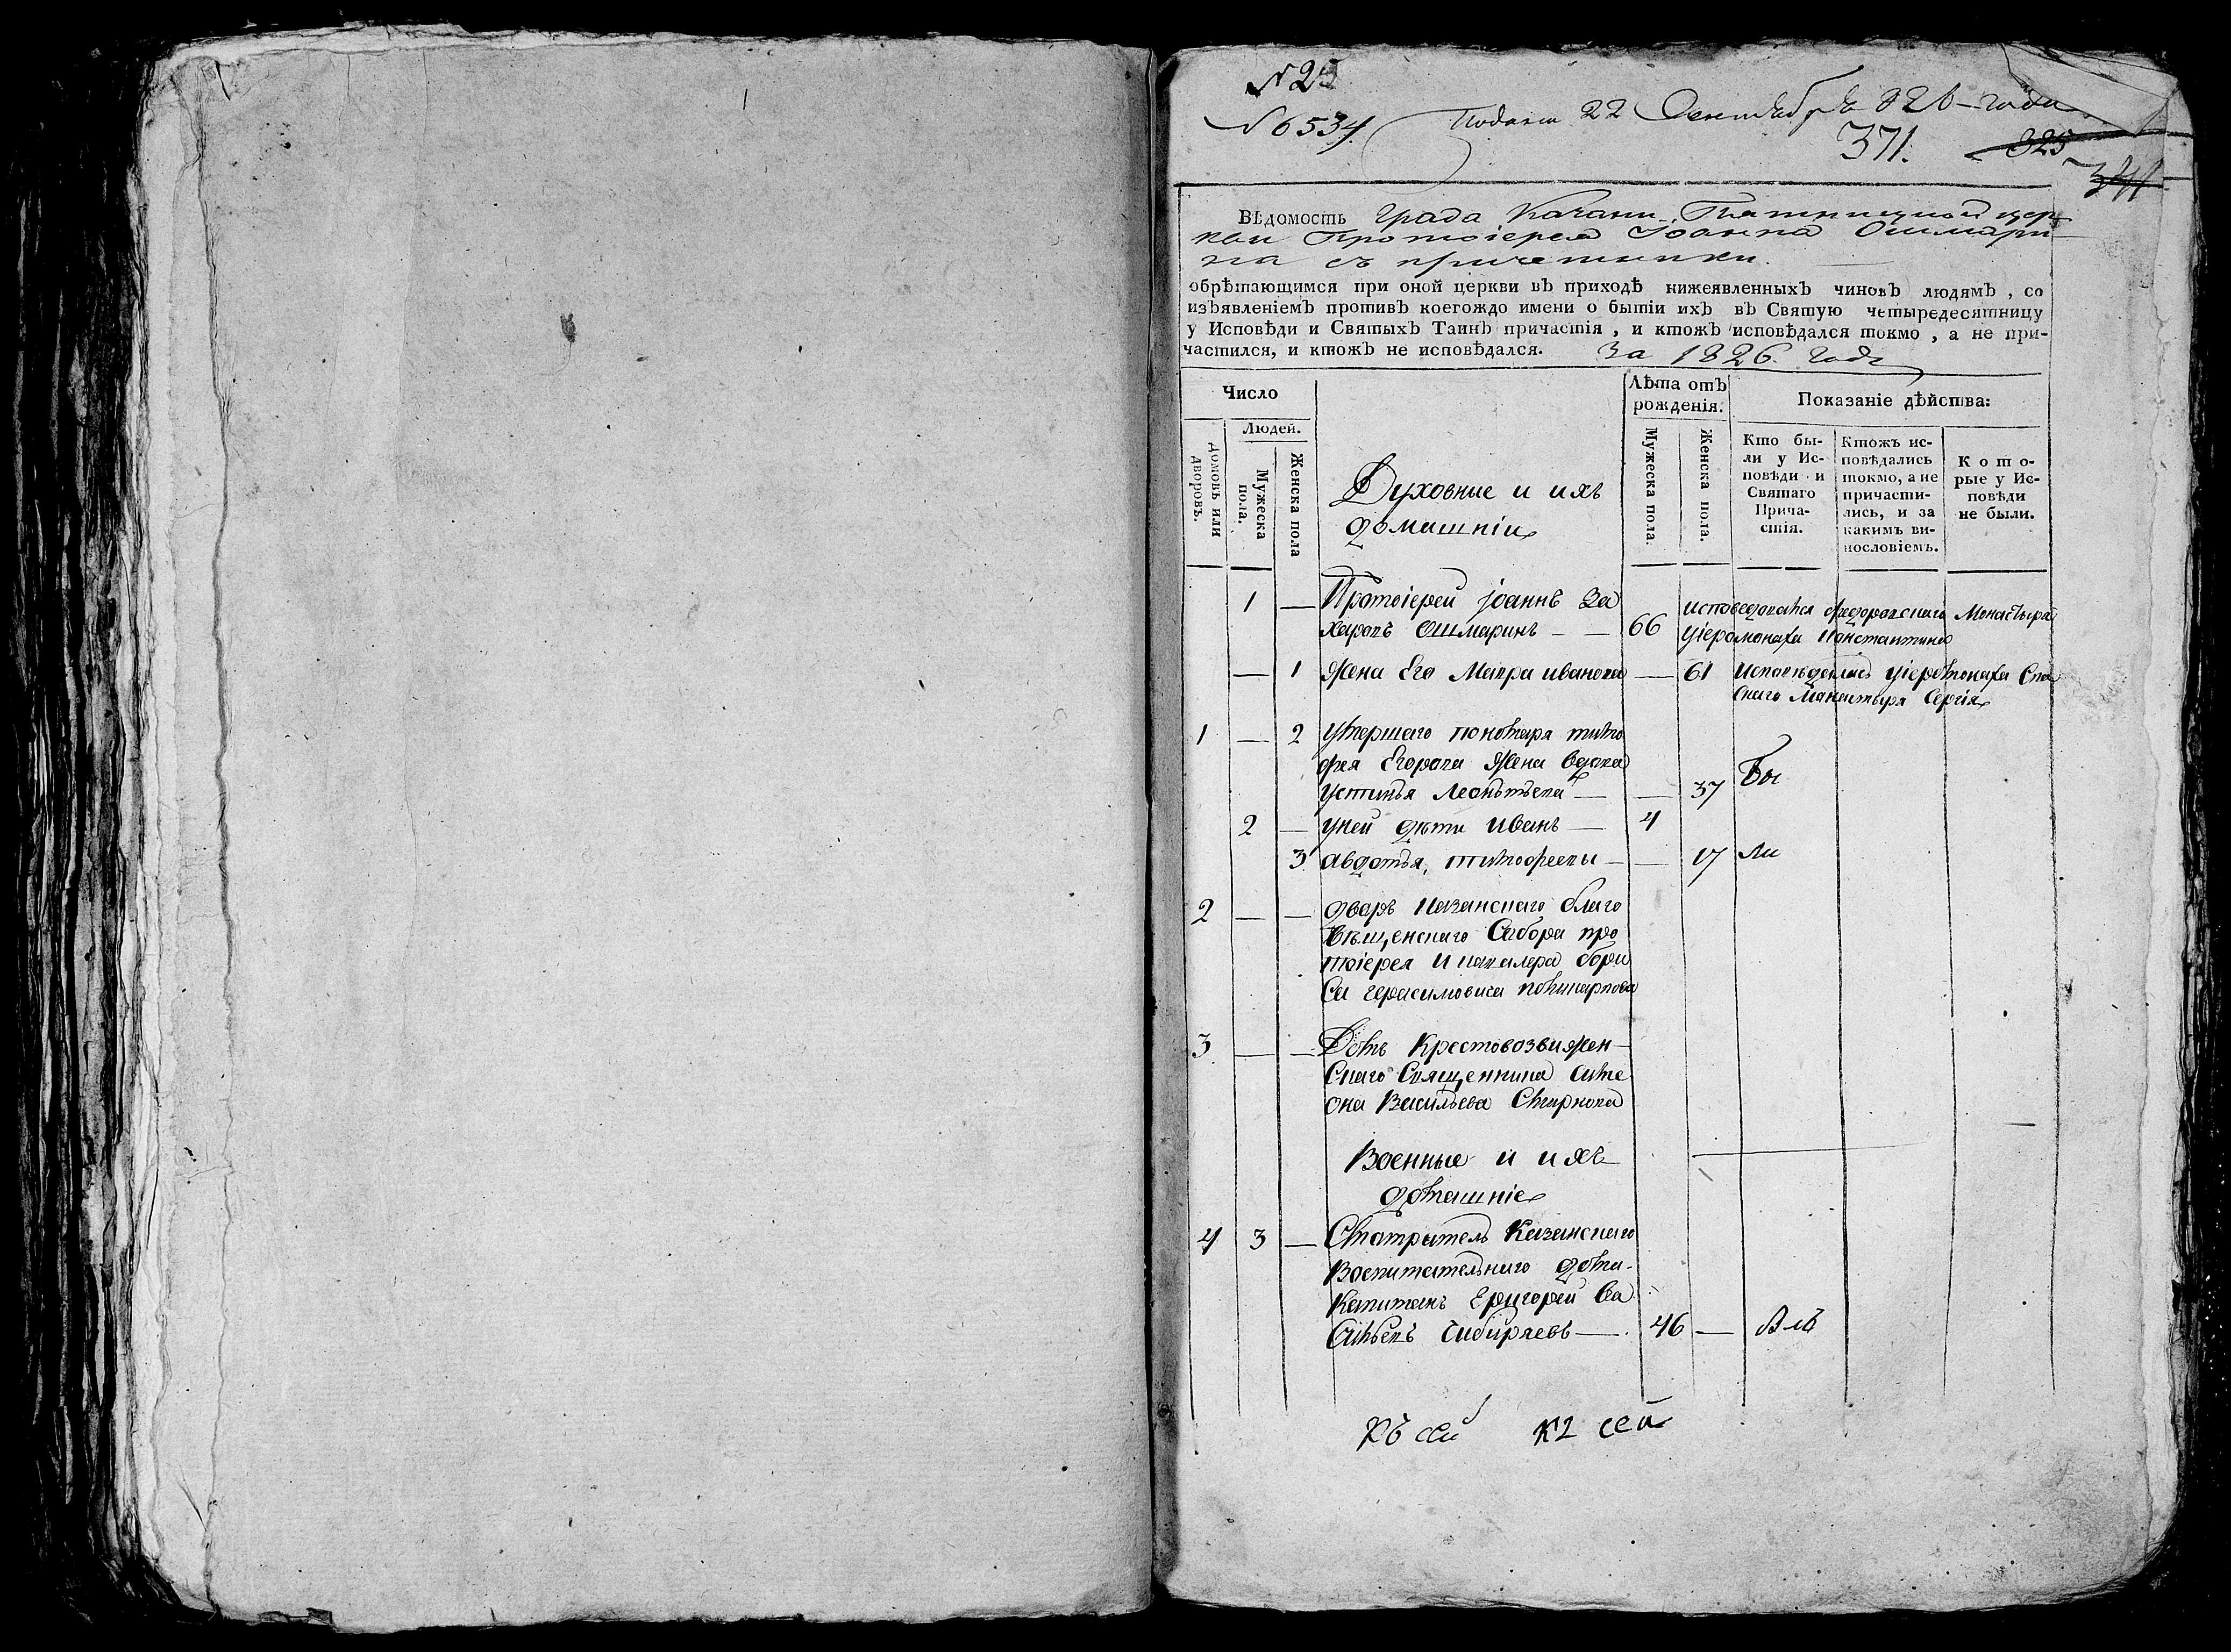 № 25
№ 6534 Подана 22 Сентября 826 года
371. 325
344
Вѣдомость Града Казани, Пятницкой цер
кви Протоіерея Іоанна Ошмари
на съ причетники.
обрѣтающимся при оной церкви въ приходѣ нижеявленныхъ чиновъ людямъ, со
изъявленіемъ противъ коегождо имени о бытіи ихъ въ Святую четыредесятницу
у Исповѣди и Святыхъ Таинъ причастія, и ктожъ исповѣдался токмо, а не при-
частился, и ктожъ не исповѣдался. За 1826 годъ
Число
Людей.
Домовъ или дворовъ.
Мужеска пола.
Женска пола
Духовные и ихъ
домашніи
Лѣта отъ
рожденія.
Мужеска пола.
Женска пола.
Показаніе дѣйства:
Кто бы-
ли у Ис-
повѣди и
Святаго
Прича-
стія.
Ктожъ ис-
повѣдались
токмо, а не
причасти-
лись, и за
какимъ ви-
нословіемъ.
Кото-
рые у Ис-
повѣди
не были.
1 — Протоіерей Іоаннъ За
харовъ Ошмаринъ — — 66 исповедовался Федоровскаго Монастыря
уіеромонаха Константина
— 1 Жена Его Мавра иванова — 61 Исповѣдалась уіеромонаха Спа
скаго Манастыря Сергія
1 — 2 умершаго пономаря тимо
фея Егорова Жена вдова
Устинья Леонтьева — — 37 Бы
2 — уней дѣти иванъ — 4
3 авдотья, тимофеевы — — 17 ли
2 — — дворъ Казанскаго благо
вѣщенскаго Сабора про
тоіерея И кавалера бори
са герасимовича поликарпова
3 — — Домъ Крестовоздвижен-
скаго Священника симе
она Васильева Смирнова
Военные и ихъ
домашніе
4 3 — Смотритель Казанскаго
Воспитательнаго дома
Капитанъ Григорей Ва
сильевъ Сибиряевъ — 46 — Былъ
къ сей къ сей